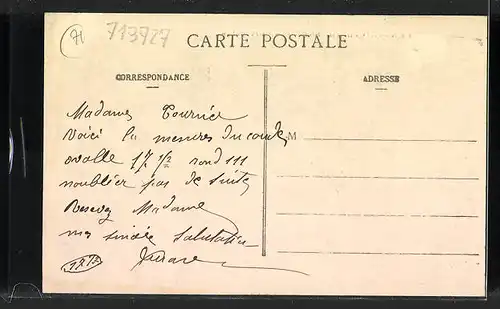 71
713927
CARTE POSTALE
CORRESPONDANCE
ADRESSE
M
Madame Tournier
Voici la mesures du
ovalle 17 1/2 rond 111
noublier pas de suite
Recevez Madame
ma sincère Salutation